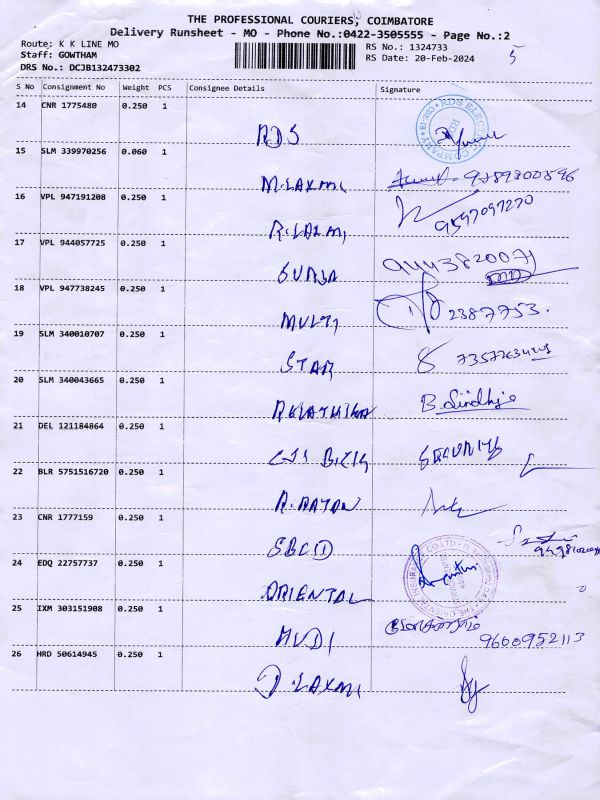 THE PROFESSIONAL COURIERS, COIMBATORE
Delivery Runsheet - MO - Phone No.:0422-3505555 - Page No.:2
Route: K K LINE MO
RS No.: 1324733
Staff: GOWTHAM
RS Date: 20-Feb-2024
5
DRS No.: DCJB132473302
S No Consignment No Weight PCS Consignee Details Signature
14 CNR 1775480 0.250 1
RDS
15 SLM 339970256 0.060 1
M.LAXMI
16 VPL 947191208 0.250 1
R.LAXMI
9597097270
17 VPL 944057725 0.250 1
9443820071
18 VPL 947738245 0.250 1
MULTI
2387753.
19 SLM 340010707 0.250 1
STAR
20 SLM 340043665 0.250 1
B.
21 DEL 121184864 0.250 1
22 BLR 5751516720 0.250 1
R.RATAN
23 CNR 1777159 0.250 1
24 EDQ 22757737 0.250 1
ORIENTAL
25 IXM 303151908 0.250 1
9600952113
26 HRD 50614945 0.250 1
D.LAXMI